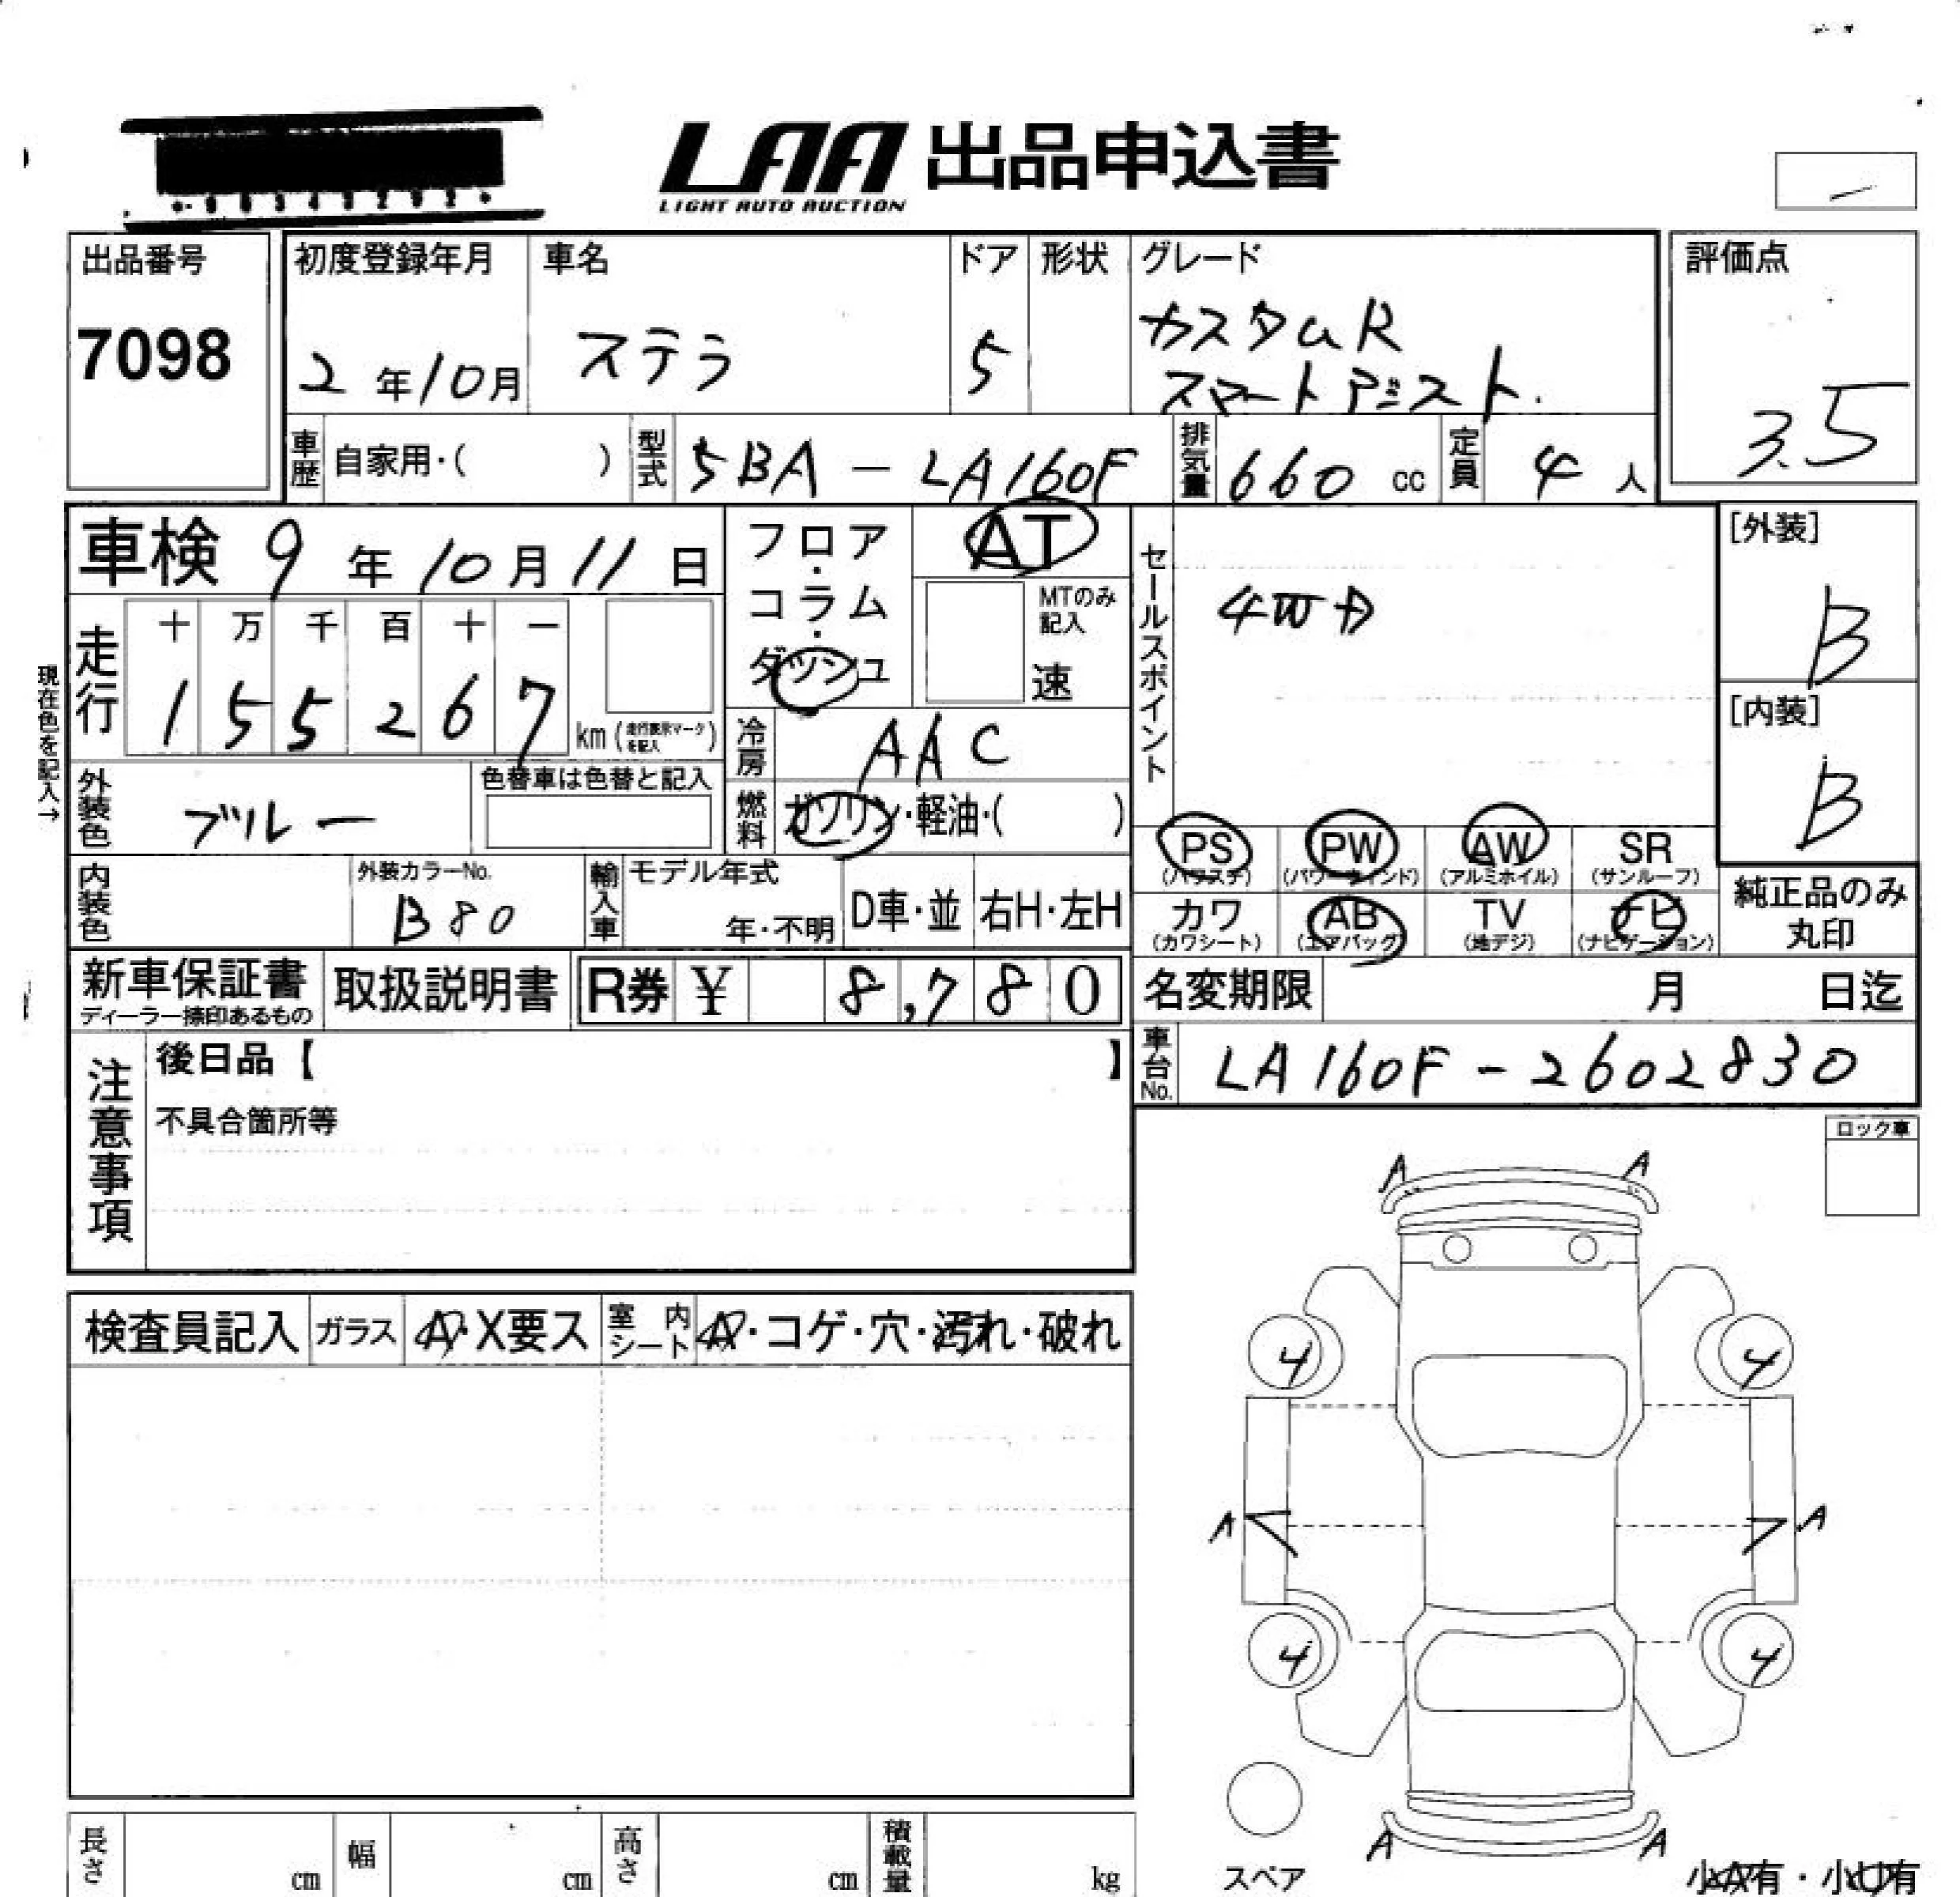 LAA 出品申込書
LIGHT AUTO AUCTION
出品番号
7098
初度登録年月
2年10月
車名
ステラ
ドア
5
形状
グレード
カスタムR
スマートアシスト.
評価点
3.5
車歴 自家用・( )
型式 5BA - LA160F
排気量 660 cc
定員 4人
車検 9年10月11日
フロア・コラム・ダッシュ
AT
MTのみ記入
速
セールスポイント
4WD
[外装]
B
[内装]
B
現在色を記入→
走行
十 万 千 百 十 一
1 5 5 2 6 7
km (走行表示マークを記入)
冷房 AAC
外装色 ブルー
色替車は色替と記入
燃料 ガソリン・軽油・( )
PS (パワステ)
PW (パワーウィンド)
AW (アルミホイル)
SR (サンルーフ)
カワ (カワシート)
AB (エアバッグ)
TV (地デジ)
ナビ (ナビゲーション)
純正品のみ丸印
内装色
外装カラーNo.
B80
輸入車
モデル年式
年・不明
D車・並
右H・左H
新車保証書
ディーラー捺印あるもの
取扱説明書
R券 ¥ 8,780
名変期限 月 日迄
車台No. LA160F-2602830
注意事項
後日品【 】
不具合箇所等
ロック車
検査員記入
ガラス
A・X要ス
室内シート
A・コゲ・穴・汚れ・破れ
A A
4 4
A A
4 4
A A
スペア
小A有・小U有
長さ cm
幅 cm
高さ cm
積載量 kg